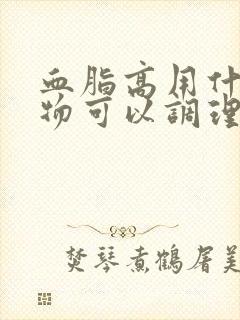 血脂高用什
物可以調理
焚琴煮鶴屠美